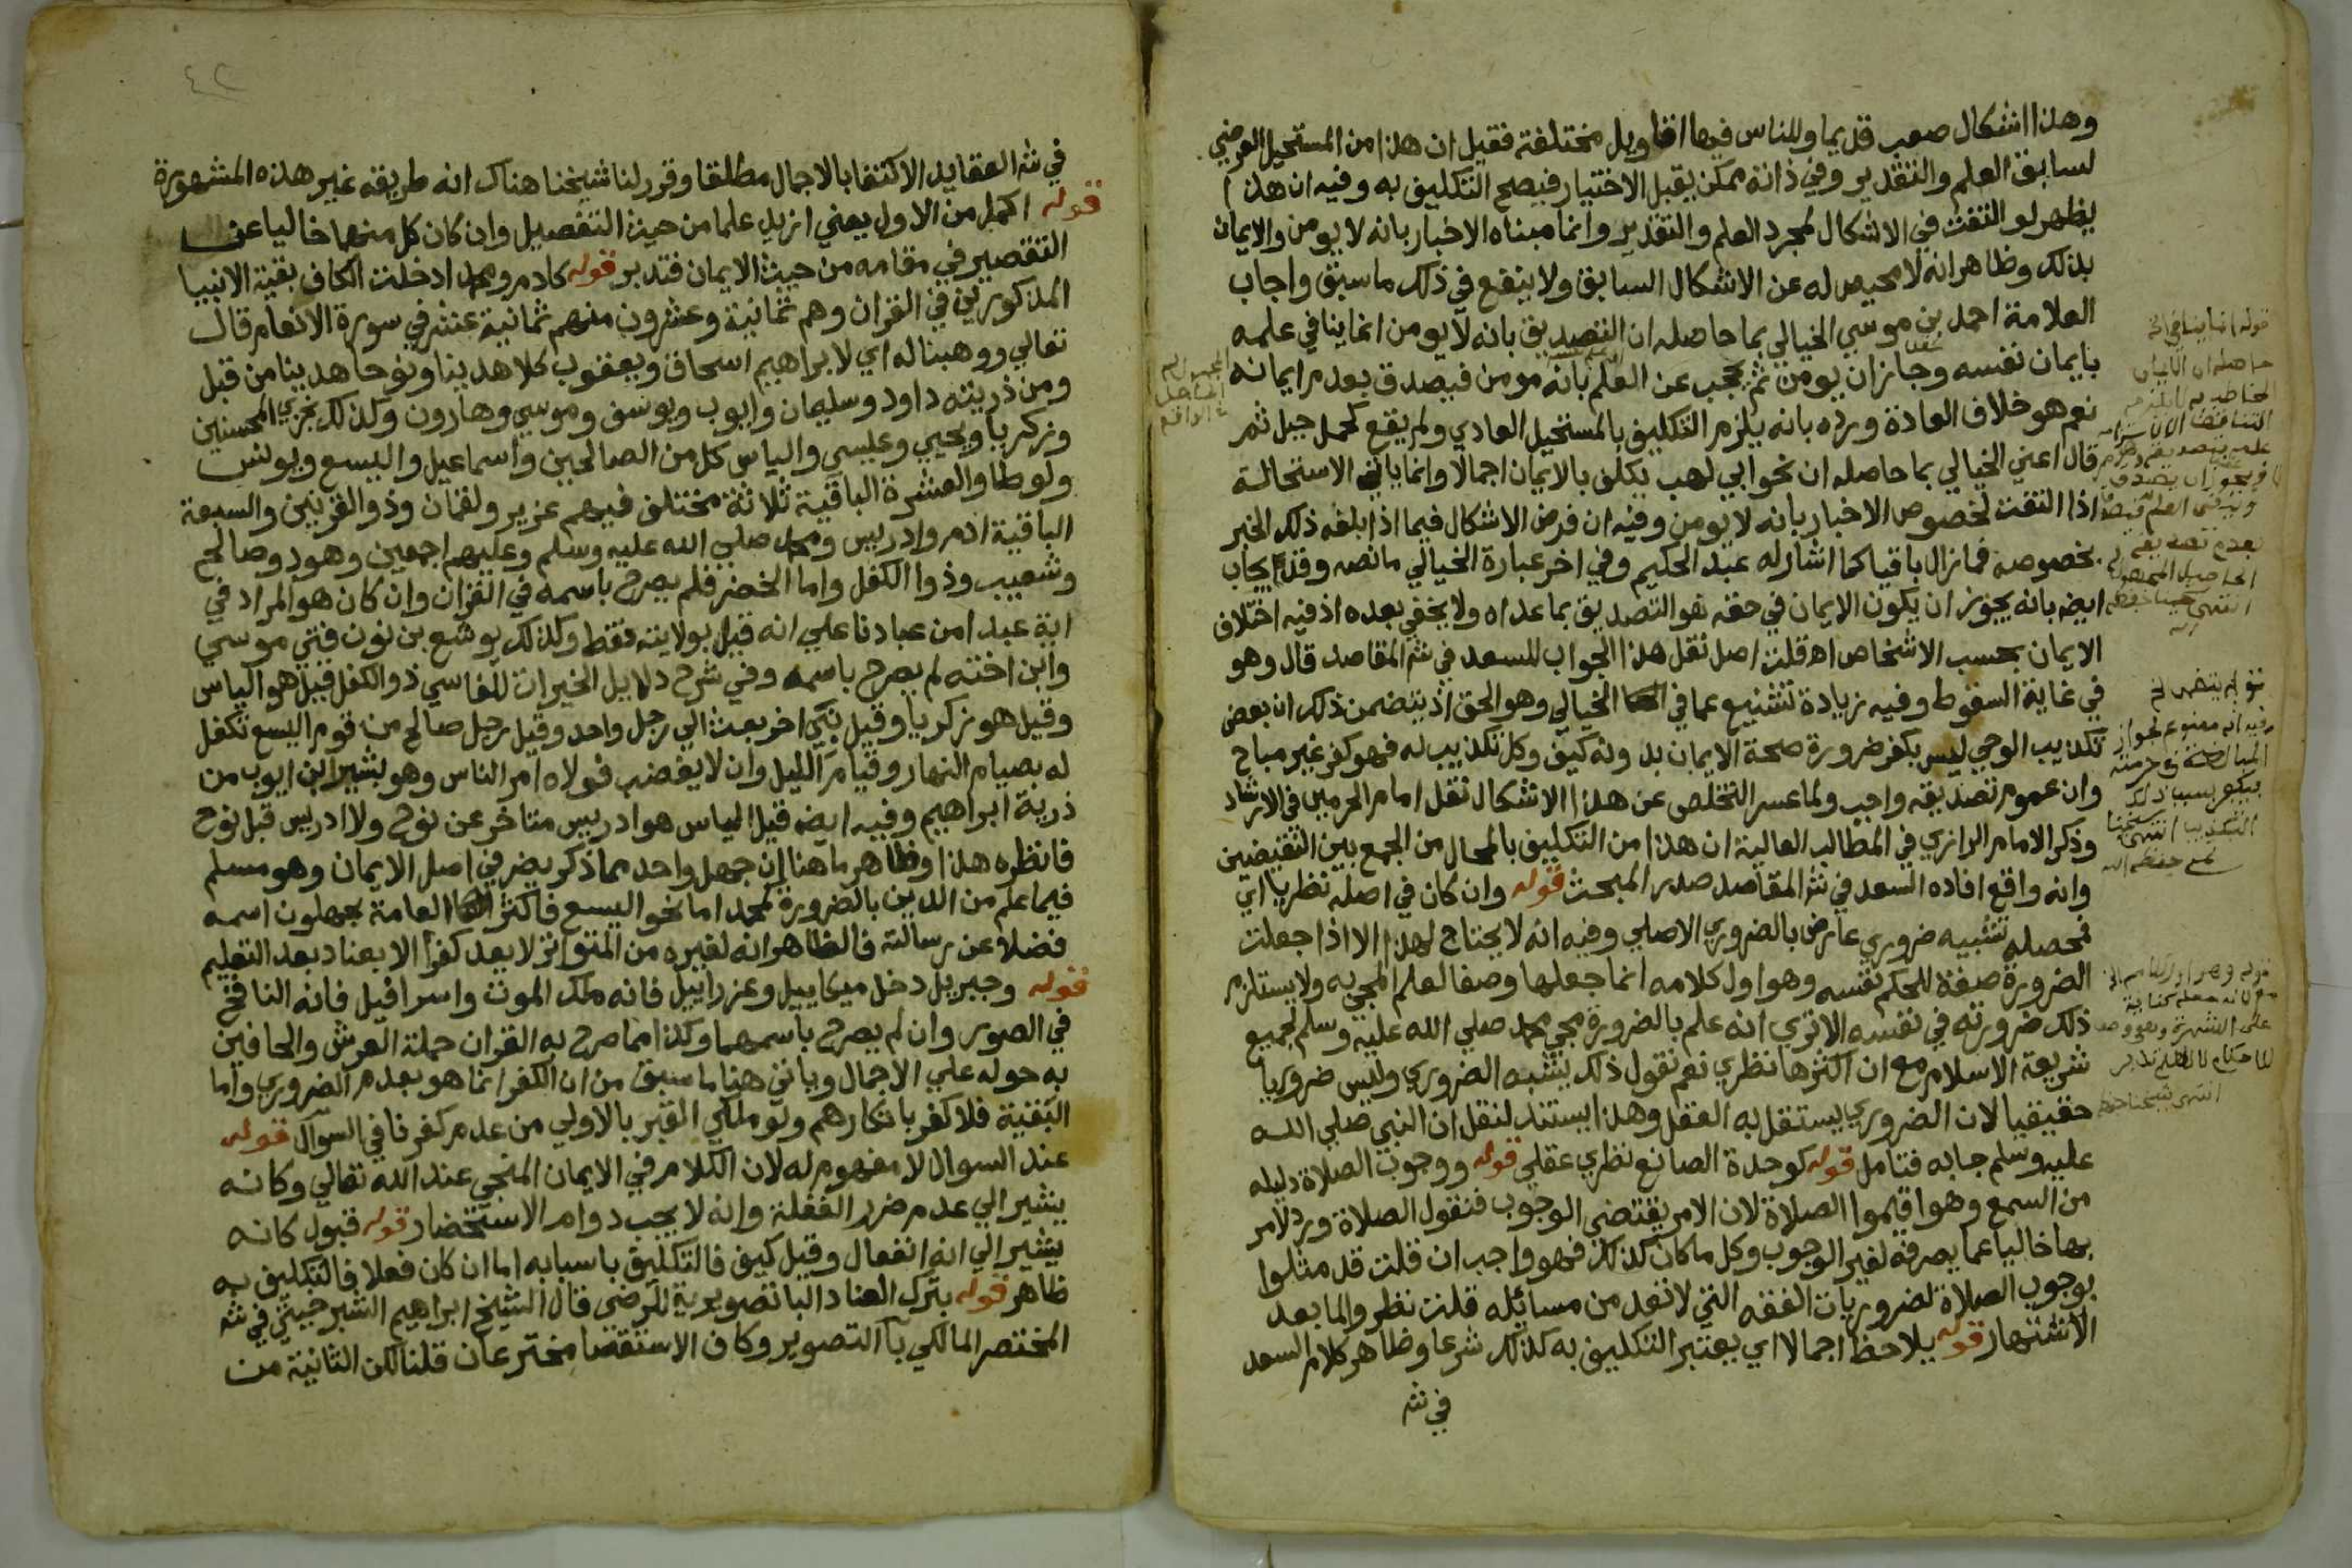 وهذا اشكال صعب قديما وللناس فيها اقاويل مختلفة فقيل ان هذا من المستحيل العرضي
لسابق العلم والتقدير وفي ذاته ممكن يقبل الاختيار فيصح التكليف به وفيه ان هذا
يظهر لو التفت في الاشكال لمجرد العلم والتقدير وانما مبناه الاخبار بانه لا يومن والايمان
بذلك وظاهر انه لا محيص له عن الاشكال السابق ولا ينفع في ذلك ما سبق واجاب
العلامة احمد بن موسي الخيالي بما حاصله ان التصديق بانه لا يومن انما ينافي علمه
بايمان نفسه وجاز ان يومن ثم يحجب عن العلم بانه مومن فيصدق بعدم ايمانه
نعم هو خلاف العادة ورده بانه يلزم التكليف بالمستحيل العادي ولم يقع كحمل جبل ثم
قال اعني الخيالي بما حاصله ان نحو ابي لهب يكلف بالايمان اجمالا وانما ياتي الاستحالة
اذا التفت لخصوص الاخبار بانه لا يومن وفيه ان فرض الاشكال فيما اذا بلغه ذلك الخبر
بخصوصه فما زال باقيا كما اشار له عبد الحكيم وفي اخر عبارة الخيالي ما نصه وقد يجاب
ايضا بانه يجوز ان يكون الايمان في حقه هو التصديق بما عداه ولا يخفي بعده اذ فيه اختلاف
الايمان بحسب الاشخاص اه قلت اصل نقل هذا الجواب للسعد في شر المقاصد قال وهو
في غاية السقوط وفيه زيادة تشنيع عما في الخيالي وهو الحق اذ يتضمن ذلك ان بعض
تكذيب الوحي ليس بكفر ضرورة صحة الايمان بدونه كيف وكل تكذيب له فهو كفر غير مباح
وان عموم تصديقه واجب ولما عسر التخلص عن هذا الاشكال نقل امام الحرمين في الارشاد
وذكر الامام الرازي في المطالب العالية ان هذا من التكليف بالمحال من الجمع بين النقيضين
وانه واقع افاده السعد في شر المقاصد صدر المبحث قوله وان كان في اصله نظريا اي
فمحصله تشبيه ضروري عارض بالضروري الاصلي وفيه انه لا يحتاج لهذا الا اذا جعلت
الضرورة صفة للحكم نفسه وهو اول كلامه انما جعلها وصفا لعلم المجي به ولا يستلزم
ذلك ضرورته في نفسه الا تري انه علم بالضرورة مجي محمد صلي الله عليه وسلم لجميع
شريعة الاسلام مع ان اكثرها نظري نعم نقول ذلك يشبه الضروري وليس ضروريا
حقيقيا لان الضروري يستقل به العقل وهذا يستند لنقل ان النبي صلي الله
عليه وسلم جا به فتامل قوله كوحدة الصانع نظري عقلي قوله ووجوب الصلاة دليله
من السمع وهو اقيموا الصلاة لان الامر يقتضي الوجوب فنقول الصلاة ورد الامر
بها خاليا عما يصرفه لغير الوجوب وكل ما كان كذلك فهو واجب ان قلت قد مثلوا
بوجوب الصلاة لضروريات الفقه التي لا تعد من مسائله قلت نظروا لما بعد
الاشتهار قوله يلاحظ اجمالا اي يعتبر التكليف به كذلك شرعا وظاهر كلام السعد
في شر
قوله انما ينافي الخ
انتهي
٤٢
في شر العقايد الاكتفا بالاجمال مطلقا وقرر لنا شيخنا هناك انه طريقة غير هذه المشهورة
قوله اكمل من الاول يعني ازيد علما من حيث التفصيل وان كان كل منهما خاليا عن
التقصير في مقامه من حيث الايمان فتدبر قوله كادم ومحمد ادخلت الكاف بقية الانبيا
المذكورين في القران وهم ثمانية وعشرون منهم ثمانية عشر في سورة الانعام قال
تعالي ووهبنا له اي لابراهيم اسحاق ويعقوب كلا هدينا ونوحا هدينا من قبل
ومن ذريته داود وسليمان وايوب ويوسف وموسي وهارون وكذلك نجزي المحسنين
وزكريا ويحيي وعيسي والياس كل من الصالحين واسماعيل واليسع ويونس
ولوطا والعشرة الباقية ثلاثة مختلف فيهم عزير ولقمان وذو القرنين والسبعة
الباقية ادم وادريس ومحمد صلي الله عليه وسلم وعليهم اجمعين وهود وصالح
وشعيب وذوا الكفل واما الخضر فلم يصرح باسمه في القران وان كان هو المراد في
اية عبدا من عبادنا علي انه قيل بولايته فقط وكذلك يوشع بن نون فتي موسي
وابن اخته لم يصرح باسمه وفي شرح دلايل الخيرات للفاسي ذو الكفل قيل هو الياس
وقيل هو زكريا وقيل نبي اخر بعث الي رجل واحد وقيل رجل صالح من قوم اليسع تكفل
له بصيام النهار وقيام الليل وان لا يغضب فولاه امر الناس وهو بشير ابن ايوب من
ذرية ابراهيم وفيه ايض قيل الياس هو ادريس متاخر عن نوح ولا ادريس قبل نوح
فانظره هذا وظاهر ما هنا ان جهل واحد مما ذكر يضر في اصل الايمان وهو مسلم
فيما علم من الدين بالضرورة كمحمد اما نحو اليسع فاكثر العامة يجهلون اسمه
فضلا عن رسالته فالظاهر انه لغيره من المتواتر لا يعد كفرا الا بعناد بعد التعليم
قوله وجبريل دخل ميكاييل وعزراييل فانه ملك الموت واسرافيل فانه النافخ
في الصور وان لم يصرح باسمهما وكذا مما صرح به القران حملة العرش والحافين
به حوله علي الاجمال وياتي هنا ما سبق من ان الكفر انما هو بعدم الضروري واما
البقية فلا كفر بانكارهم ولو ملكي القبر بالاولي من عدم كفرنا في السوال قوله
عند السوال لا مفهوم له لان الكلام في الايمان المنجي عند الله تعالي وكانه
يشير الي عدم ضرر الغفلة وانه لا يجب دوام الاستحضار قوله قبول كانه
يشير الي انه انفعال وقيل كيف فالتكليف باسبابه اما ان كان فعلا فالتكليف به
ظاهر قوله بترك العناد البا تصويرية للرضي قال الشيخ ابراهيم الشبرخيتي في شر
المختصر المالكي با التصوير وكاف الاستقصا مخترعان قلنا لكن الثانية من